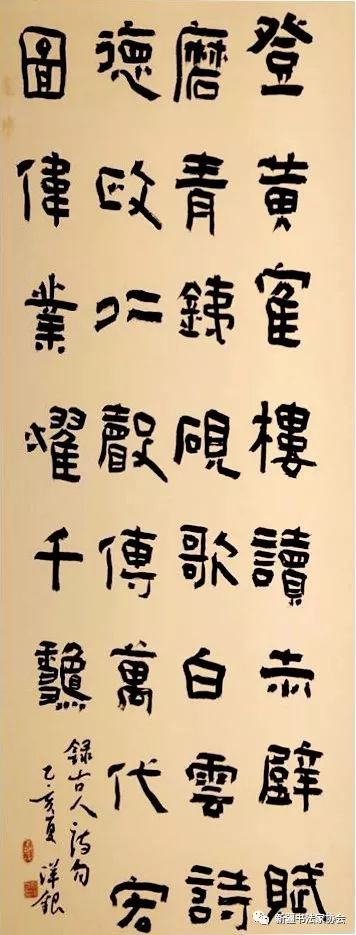 登黄隺樓讀赤壁賦
磨青銕硯歌白雲詩
德政仁聲傳萬代宏
圖偉業耀千龝
録古人詩句
乙亥夏 洋銀
新疆书法家协会